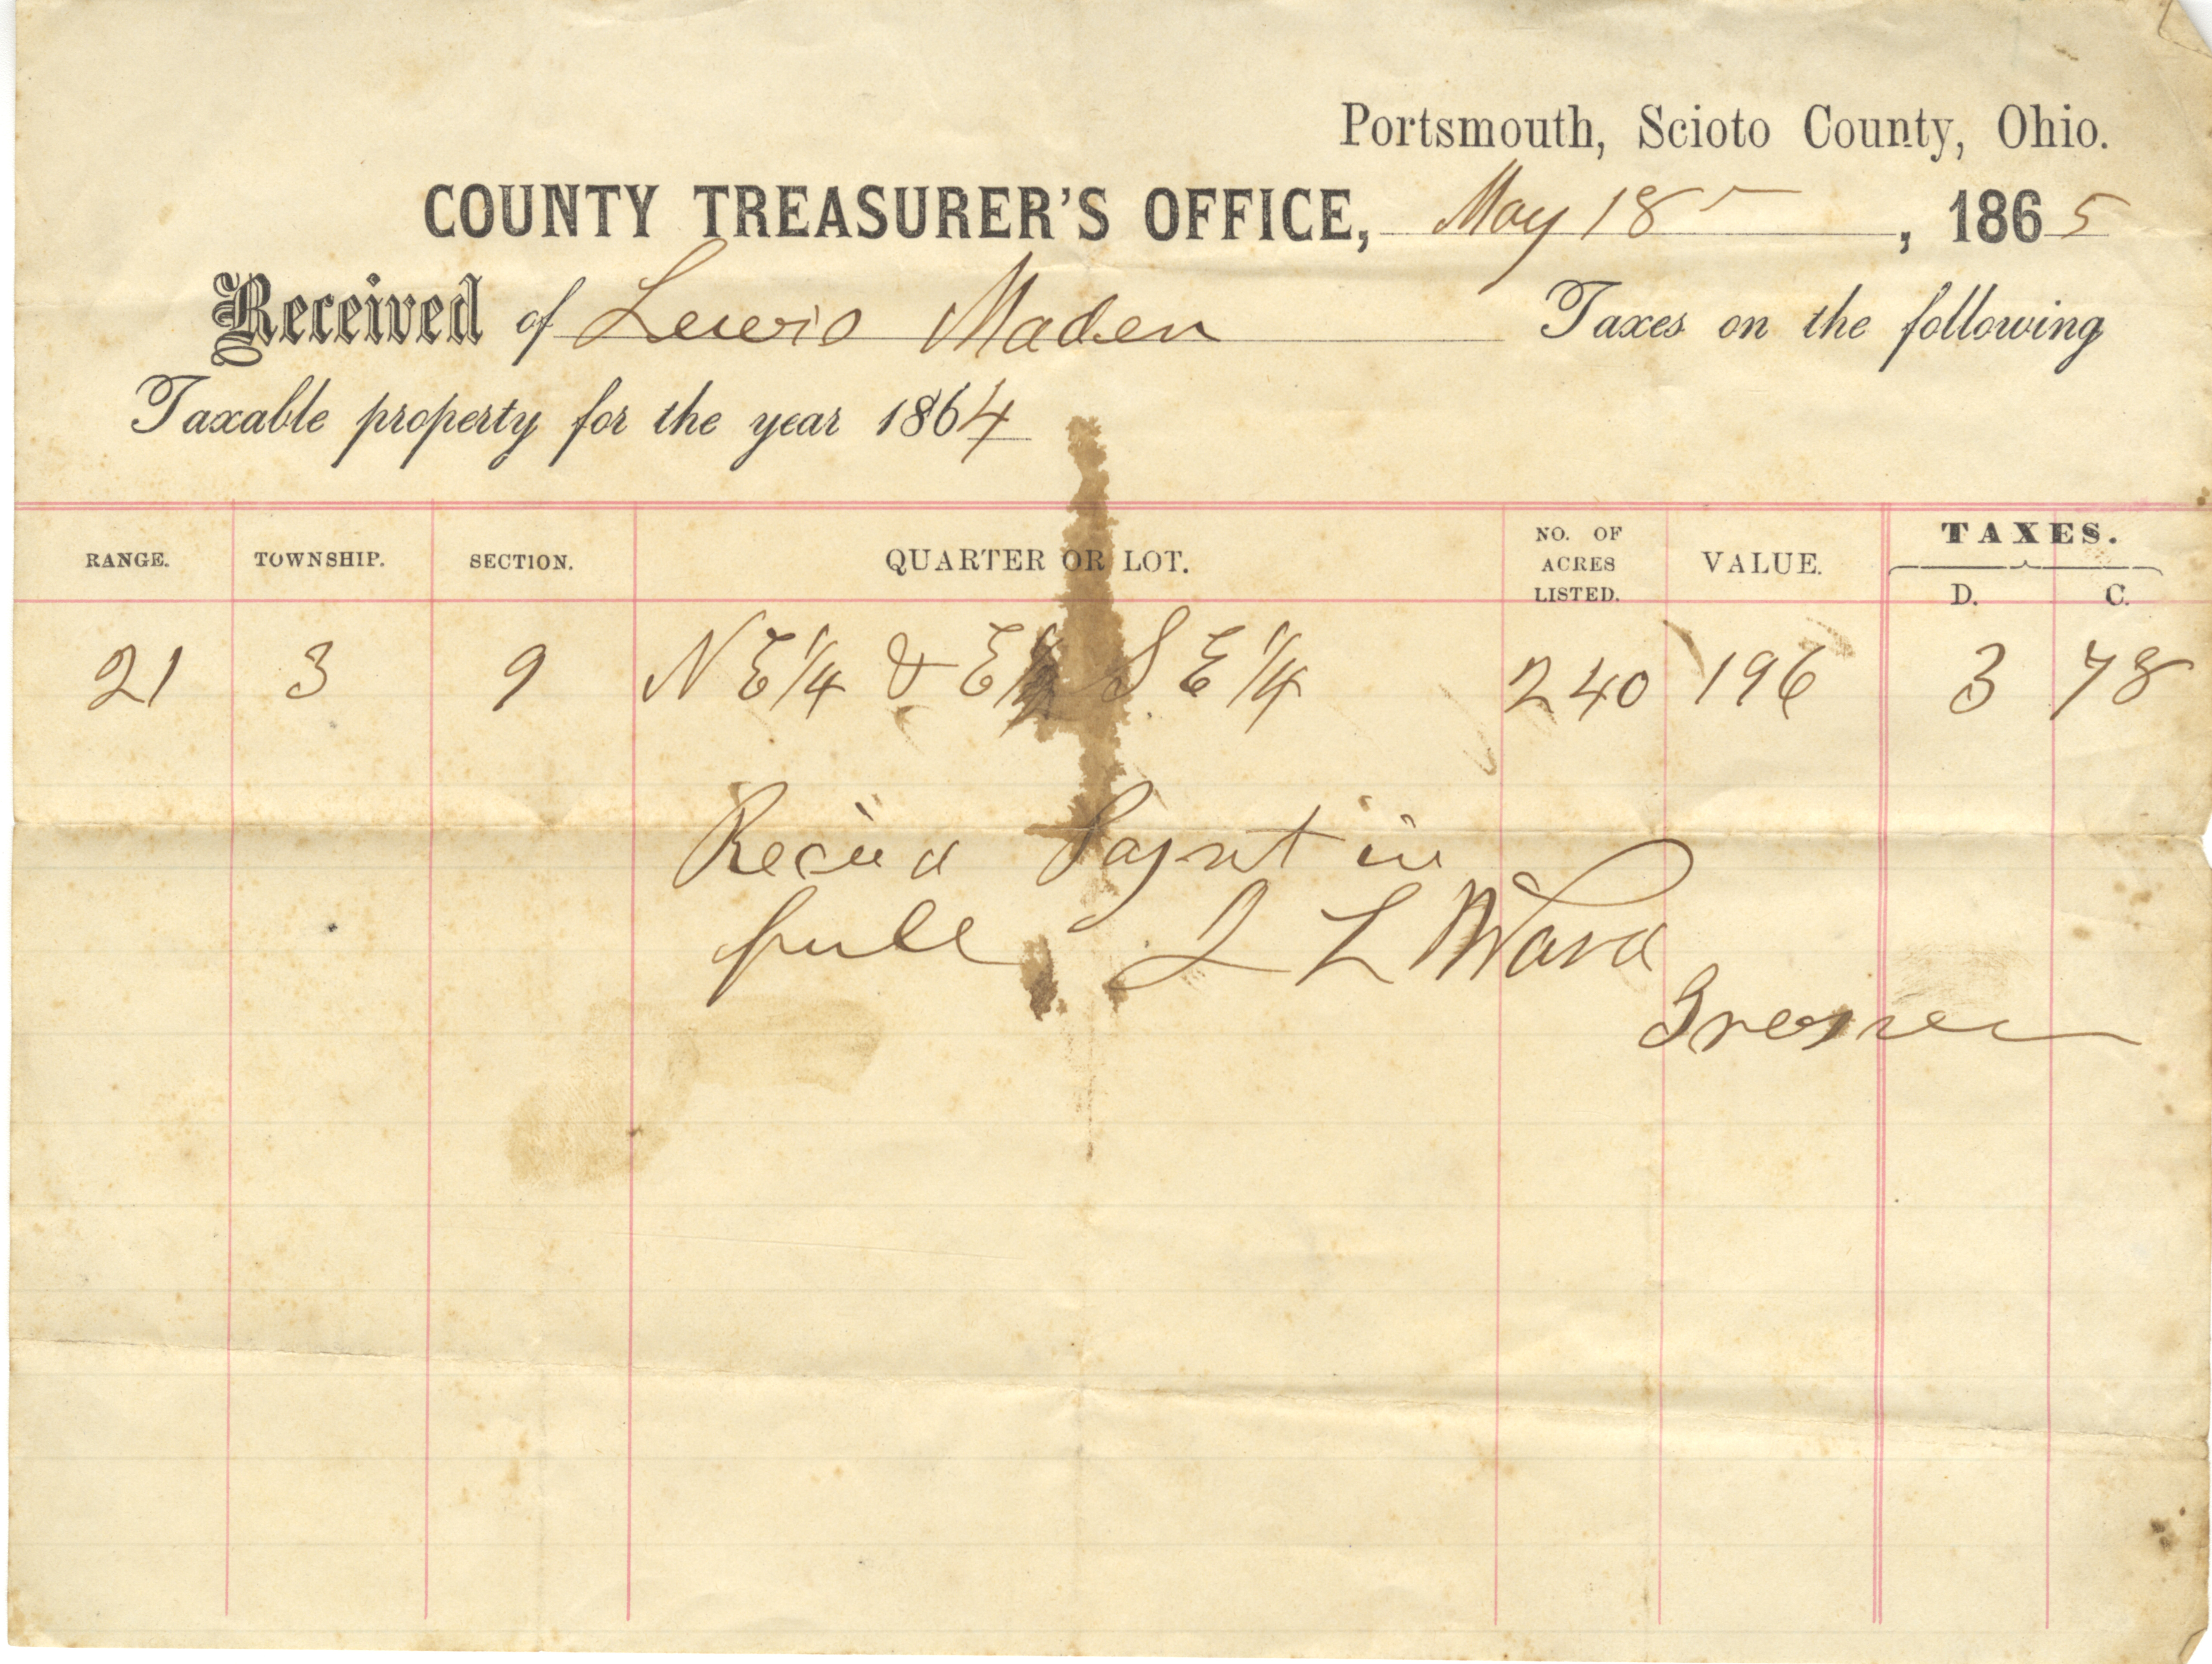 Portsmouth, Scioto County, Ohio.
COUNTY TREASURER'S OFFICE, May 18, 1865
Received of Lewis Maden Taxes on the following
Taxable property for the year 1864
RANGE. TOWNSHIP. SECTION. QUARTER OR LOT. NO. OF ACRES LISTED. VALUE. TAXES. D. C.
21 3 9 N E 1/4 & E 1/2 S E 1/4 240 196 3 78
Rec'd Paymt in
full L Ward